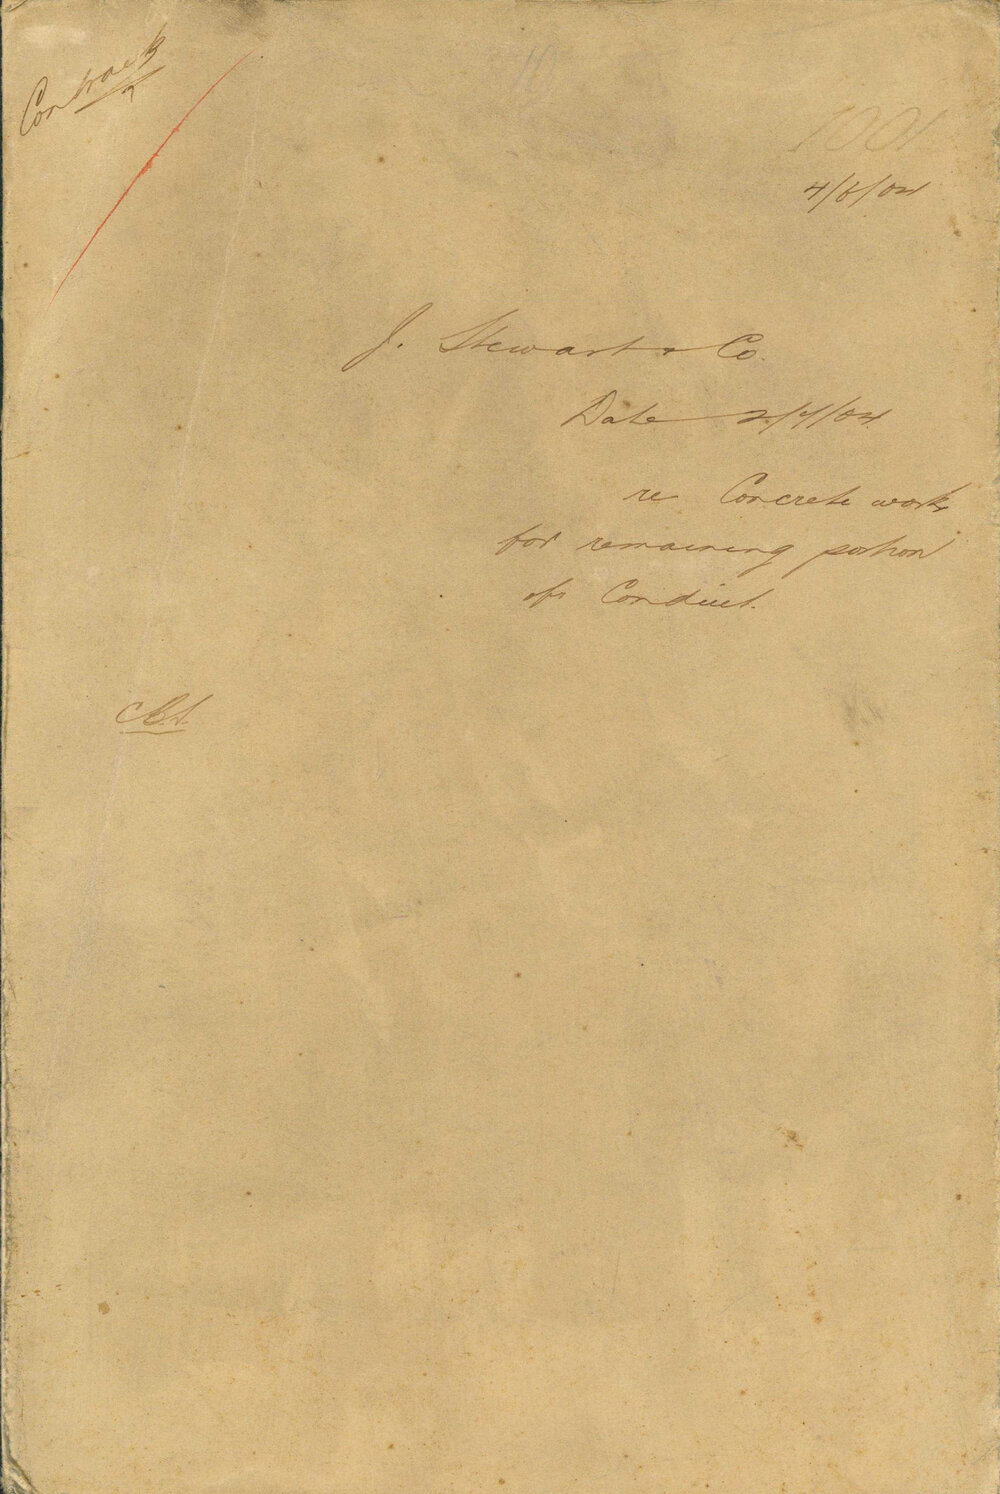 Contract
1001
4/8/04
J. Stewart & Co.
Date 2/7/04
re Concrete works
for remaining portion
of Conduit.